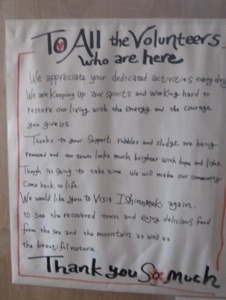 To All the Volunteers
who are here
We appreciate your dedicated activities everyday
We are keeping up our spirits and working hard to
restore our living with the energy and the courage
you give us.
Thanks to your support rubbles and sludge are being
removed and our town looks much brighter with hope and light.
Though its going to take time. We will made our community
Come back to life.
We would like you to Visit Ishinomaki again.
to see the recovered town and enjoy delicious food
from the sea and the mountain as well as
the beautiful nature
Thank you So much